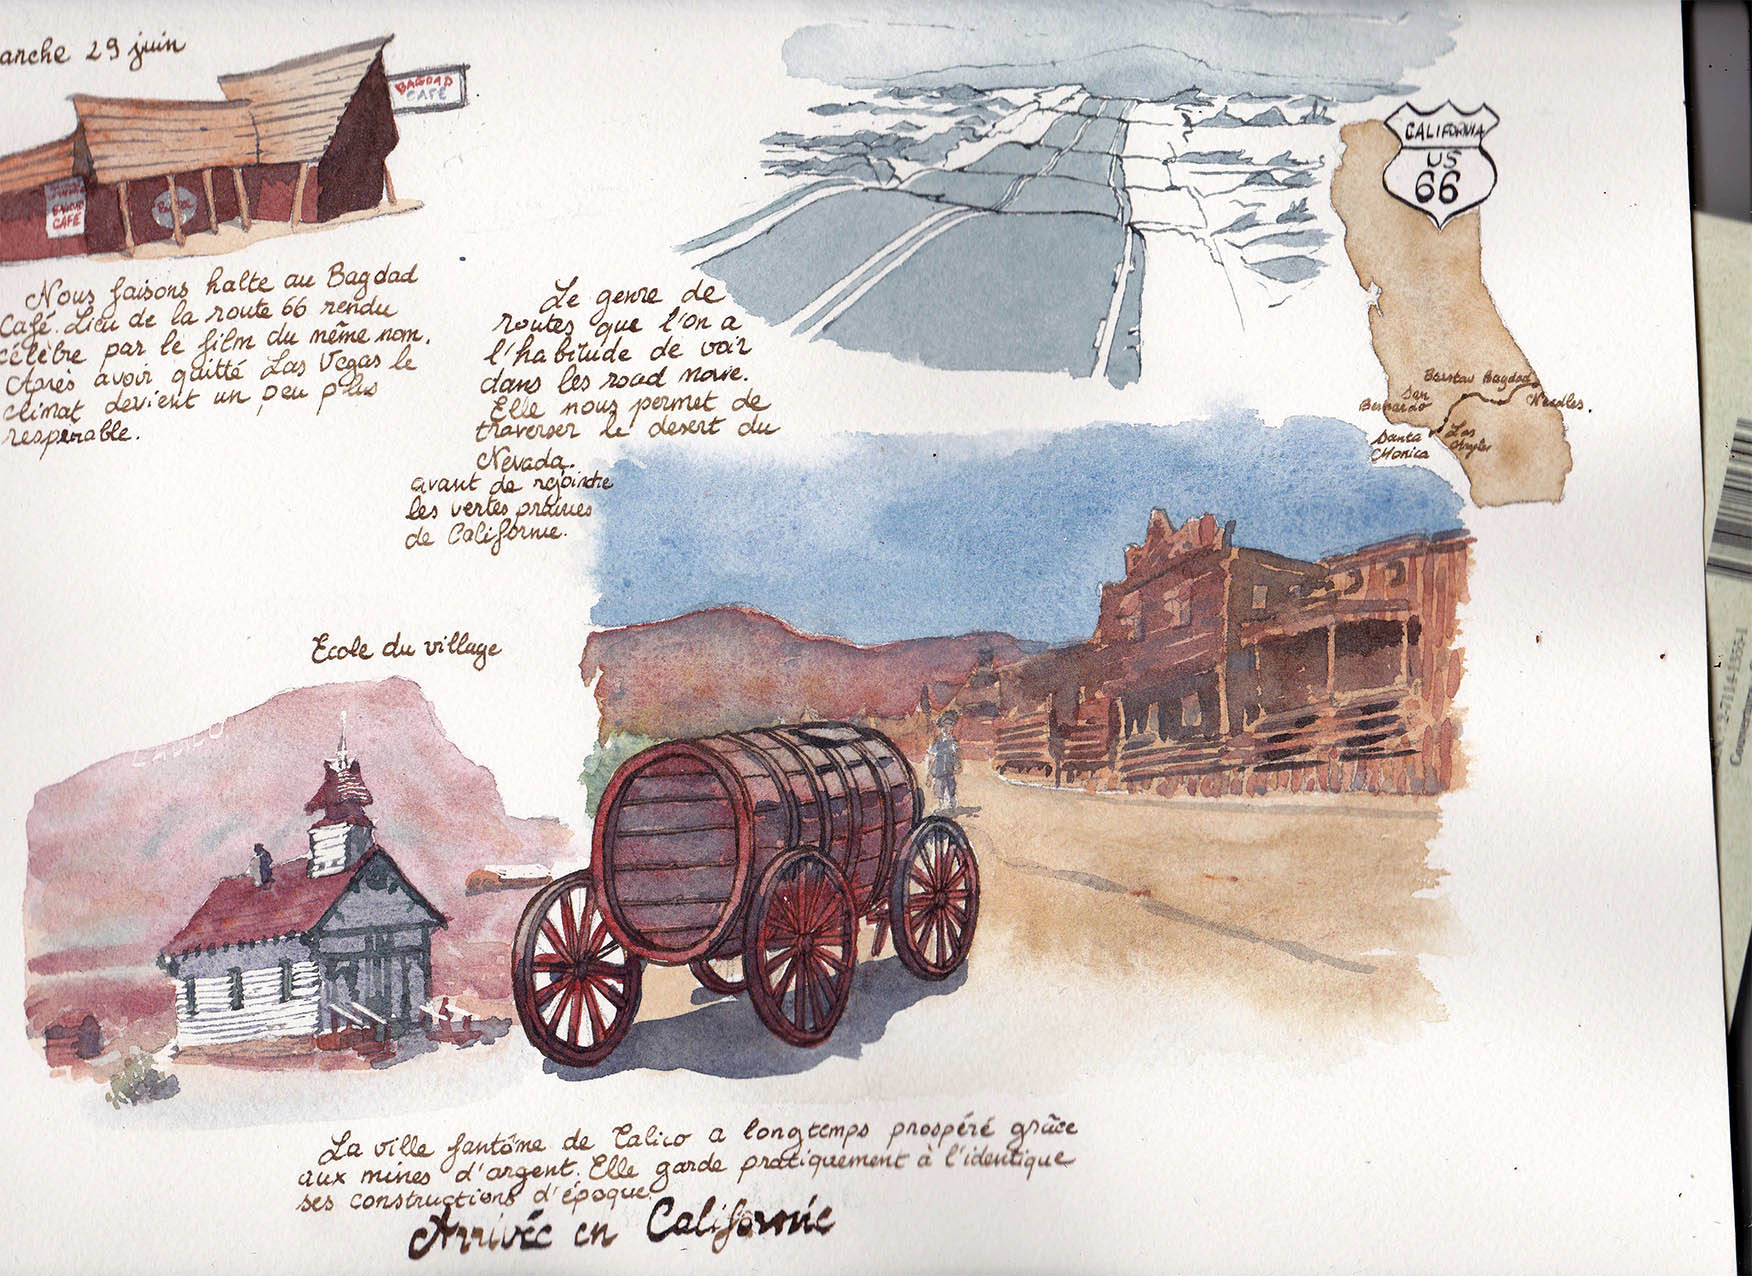 anche 29 juin
BAGDAD
CAFÉ
BAGDAD
CAFÉ
Nous faisons halte au Bagdad
Café. Lieu de la route 66 rendu
célèbre par le film du même nom.
Après avoir quitté Las Vegas le
climat devient un peu plus
respirable.
Le genre de
routes que l'on a
l'habitude de voir
dans les road movie.
Elle nous permet de
traverser le desert du
Nevada.
avant de rejoindre
les vertes prairies
de Californie.
CALIFORNIA
US
66
Barstow Bagdad
Needles.
San
Bernardo
Los
Angeles
Santa
Monica
Ecole du village
CALICO
La ville fantôme de Calico a longtemps prospéré grâce
aux mines d'argent. Elle garde pratiquement à l'identique
ses constructions d'époque.
Arrivée en Californie